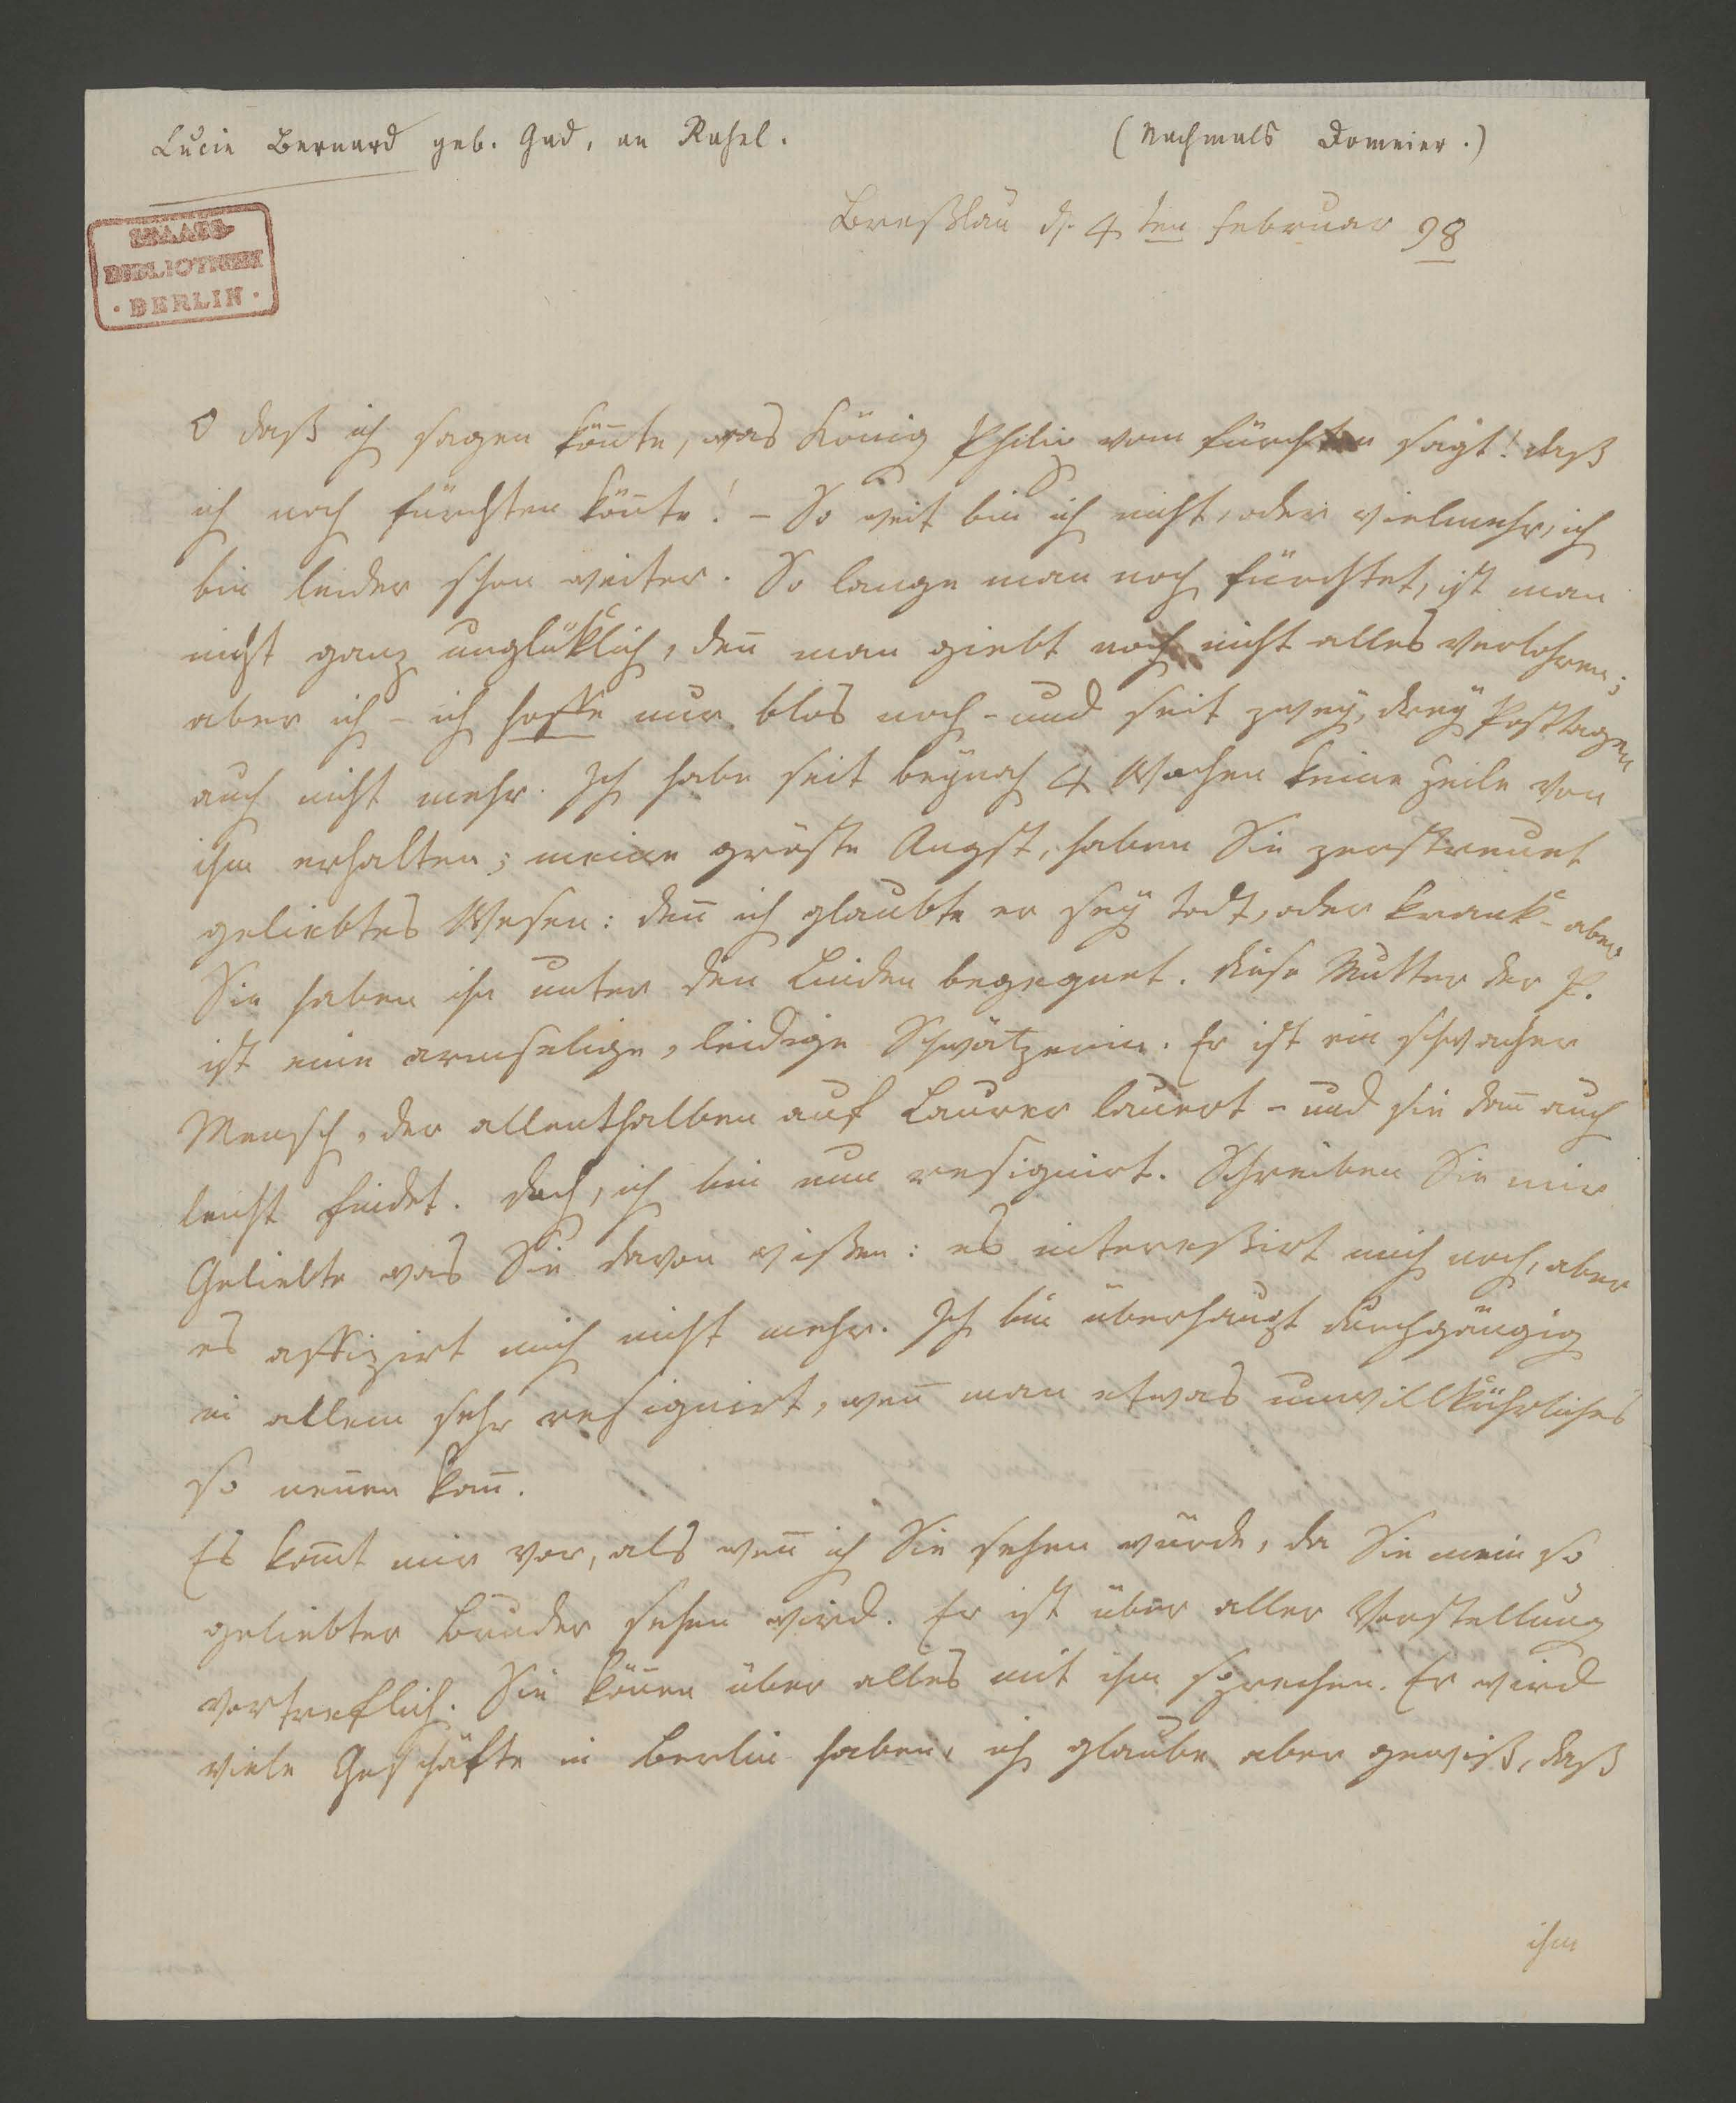 Lucie Bernard geb. Gad, an Rahel.
(Nachmals Domeier.)
STAATS-
BIBLIOTHEK
· BERLIN ·
Breßlau d. 4 ten Februar 98
O daß ich sagen kon̄te, was König Philip vom fürchten sagt! daß
ich noch fürchten kön̄te! – So weit bin ich nicht, oder vielmehr, ich
bin leider schon weiter. So lange man noch fürchtet, ist man
nicht ganz unglüklich, den̄ man giebt noch nicht alles verlohren;
aber ich – ich hoffe nur blos noch – und seit zwey, drey Posttagen
auch nicht mehr. Ich habe seit beynah 4 Wochen keine Zeile von
ihm erhalten; meine gröste Angst, haben Sie zerstreuet
geliebtes Wesen: den̄ ich glaubte er sey todt, oder krank – aber
Sie haben ihn unter den Linden begegnet. Diese Mutter der P.
ist eine armselige, leidige Schwätzerin. Er ist ein schwacher
Mensch, der allenthalben auf Laurer lauert – und sie dan̄ auch
leicht findet. Doch, ich bin nun resignirt. Schreiben Sie mir
Geliebte was Sie davon wißen: es intereßirt mich noch, aber
es affizirt mich nicht mehr. Ich bin überhaupt durchgängig
in allem sehr resignirt, wen̄ man etwas unwillkührliches
so nen̄en kan̄.
Es kom̄t mir vor, als wen̄ ich Sie sehen würde, da Sie mein so
geliebter Bruder sehen wird. Er ist über aller Vorstellung
vortreflich. Sie kön̄en über alles mit ihm sprechen. Er wird
viele Geschäfte in Berlin haben, ich glaube aber gewiß, daß
ihm